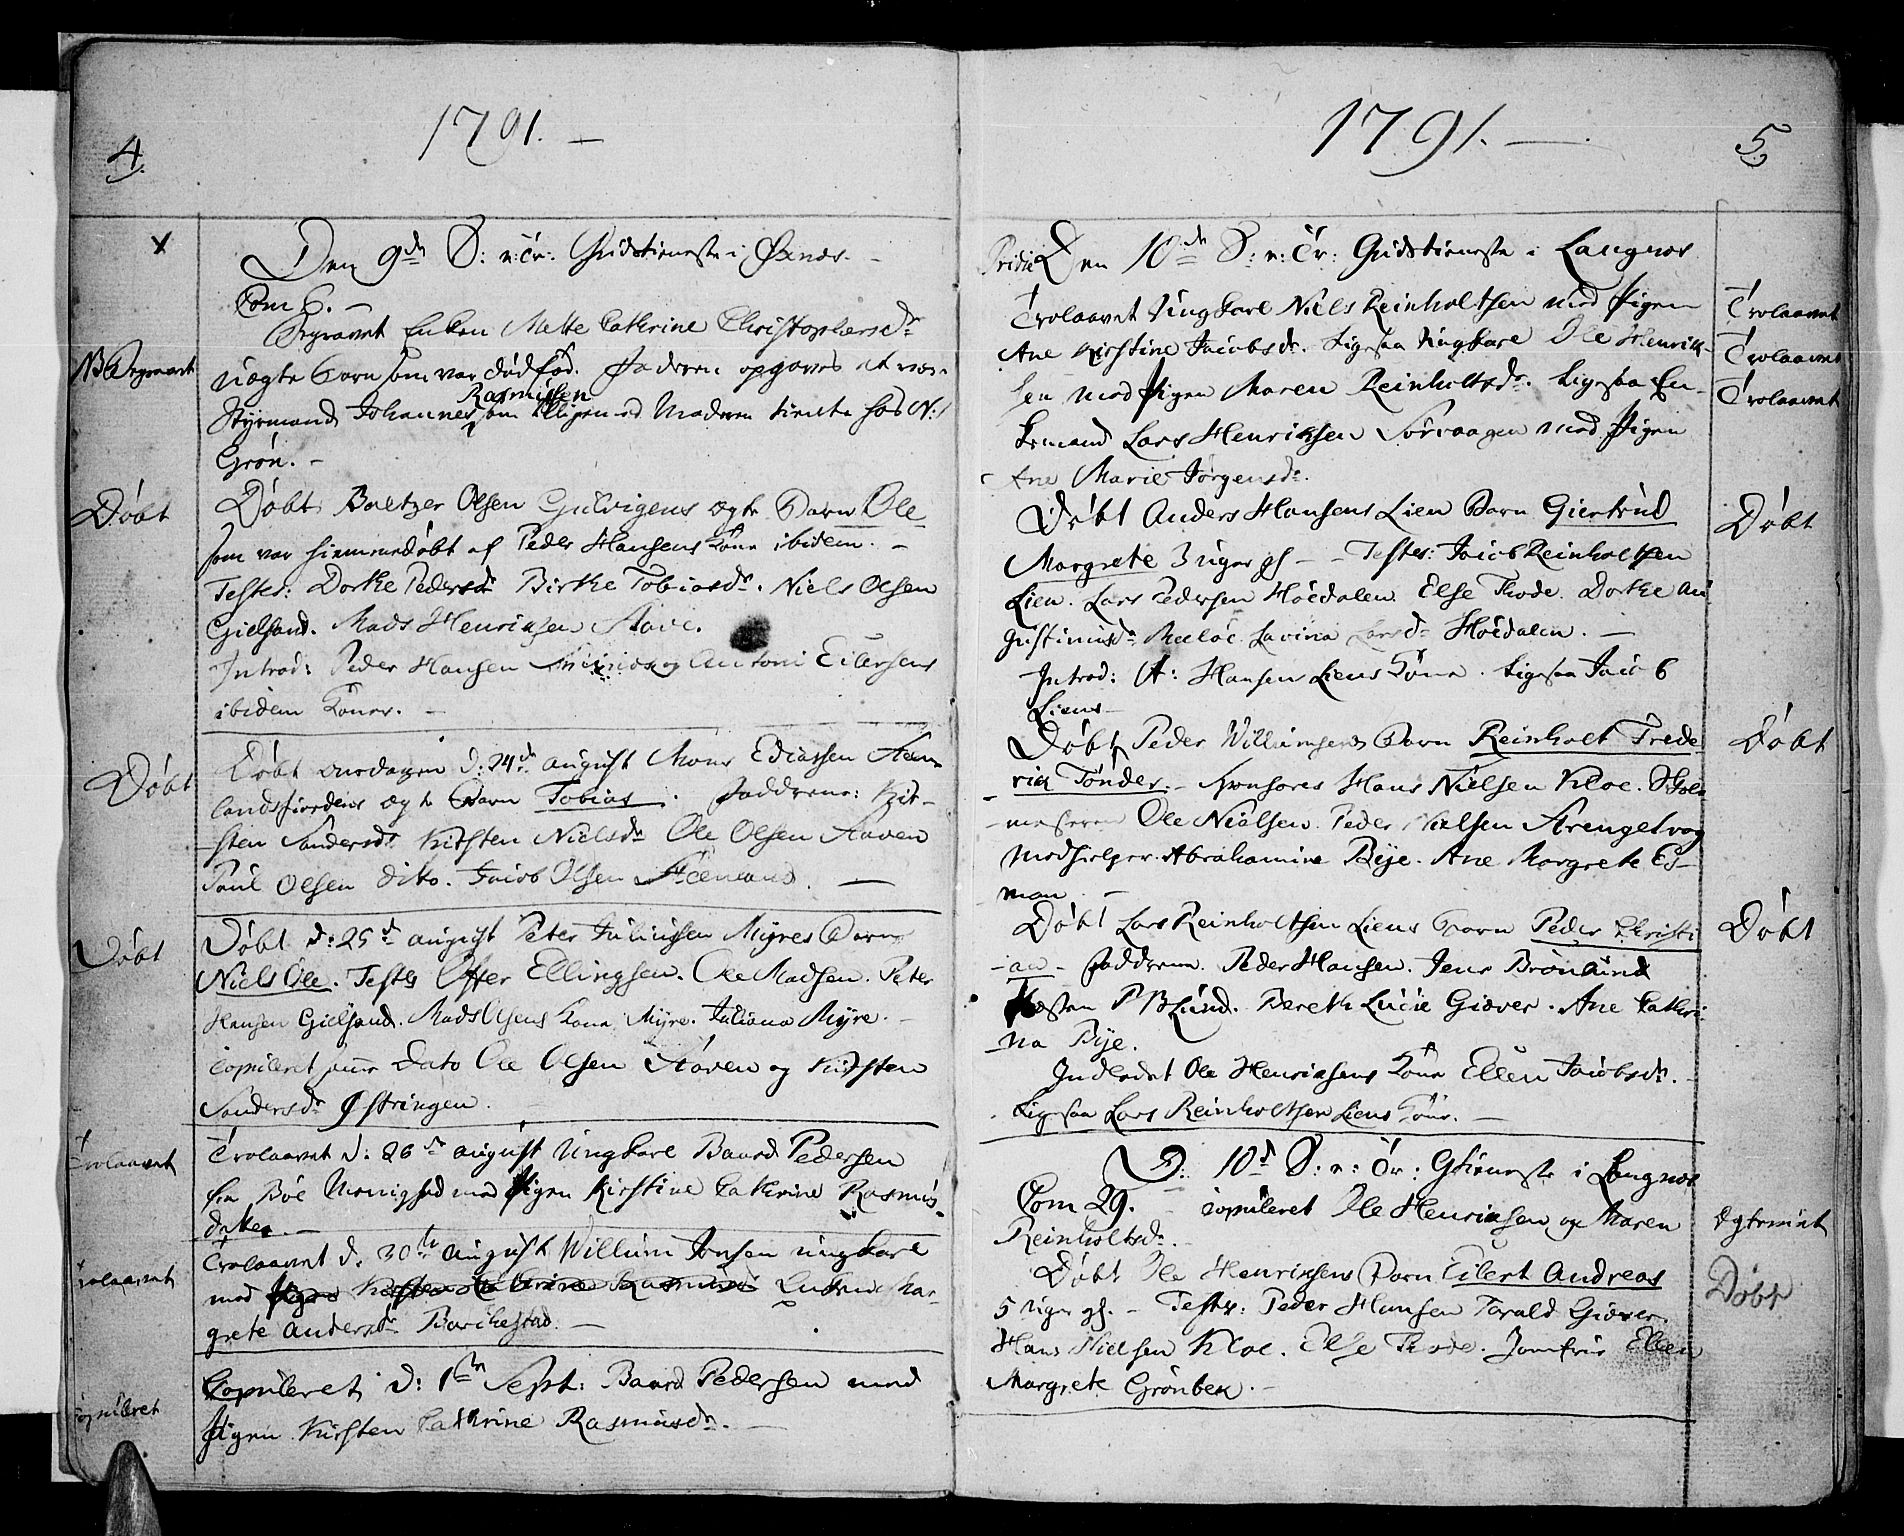 4.
1791. —
x
Den 9de S: e: Tr: Gudstieneste i Øxnes. -
Com 6. -
NB Begravet
Begravet Enken Mette Cathrine Christophersdr
uægte Barn som var dødfød. Faderen opgaves at være
Rasmussen
Styrmand Johannes som tilligemed Moderen tiente hos N:
Grön. -
Döbt
Döbt Baltzer Olsen Gulvigens ægte Barn Ole
som var hiemmedøbt af Peder Hansens Kone ibidem. -
Testes: Dorthe Pedersdr Birthe Tobiasdr. Niels Olsen
Gielsand. Mads Henrichsen Stave.
Introd: Peder Hansen og Antoni Eilersens
ibidem Koner. -
Döbt
Döbt onsdagen d: 24de august Mons Ediassen
landsfiordens ægte Barn Tobias. Fadderne: Kir-
sten Sandersdr. Kirsten Nielsdr Ole Olsen Staven
Poul Olsen dito. Jacob Olsen —
Döbt
Döbt d: 25de august Peter Juliussen Myres Barn
Niels Ole. Testes Offer Ellingsen. Ole Madsen. Peter
Hansen Gielsand. Mads Olsens Kone Myre. Juliana Myre. -
Copuleret samme Dato Ole Olsen Staven og Kirsten
Sandersdr Østringen.
Trolaavet
Trolaavet d: 26de august Ungkarl Baard Pedersen
fra Böe Menighed med Pigen Kirstine Cathrine Rasmus-
datter. -
Trolaavet
Trolaavet d. 30te august Willum Jonsen ungkarl
med Pigen Kirsten Cathrine Rasmusdr Enken Mar-
grete Andersdr Barchestad. -
Copuleret
Copuleret d: 1te Sept: Baard Pedersen med
Pigen Kirsten Cathrine Rasmusdr. -
1791. —
5
Pridie Den 10de S: e: Tr: Gudstieneste i Langnes
Trolaavet
Trolaavet Ungkarl Niels Reinholtsen med Pigen
Trolaavet
Ane Kirstine Jacobsdr. Ligesaa Ungkarl Ole Henrich-
Trolaavet
sen med Pigen Maren Reinholtsdr. Ligesaa En-
kemand Lars Henrichsen Sörvaagen med Pigen
Ane Marie Jörgensdr.
Döbt
Döbt Anders Hansens Lien Barn Giertrud
Margrete 3 uger gl — Testes: Jacob Reinholtsen
Lien. Lars Pedersen Höedalen Else Thode. Dorthe Au
gustinusdr Meelöe. Lavina Larsdr Höedalen. -
Introd: A: Hansen Liens Kone. Ligesaa Jacob
Liens -
Döbt
Döbt Peder Willumsens Barn Reinholt Frede
rich Tönder. Sponsores Hans Nielsen Kloe. Skole-
mesteren Ole Nielsen. Peder Nielsen Strengelvog
Medhielper. Abrahamine Bye. Ane Margrete Es-
man. -
Döbt
Döbt Lars Reinholtsen Liens Barn Peder Christi
an - Fadderne. Peder Hansen. Jens Brönlund
P B Lund. Bereth Lucie Giæver. Ane Cathri-
na Bye.
Indledet Ole Henrichsens Kone Ellen Jacobsdr. -
Ligesaa Lars Reinholtsen Liens Kone. —
D: 10de S: e: Tr: Gtieneste i Langnes
Com 29. - Copuleret Ole Henrichsen og Maren
Reinholtsdr. -
Döbt
Döbt Ole Henrichsens Barn Eilert Andreas
5 uger gl. - Testes: Peder Hansen Tarald Giæver.
Hans Nielsen Kloe. Else Thode. Jomfrue Ellen
Margrete Grönbek. -